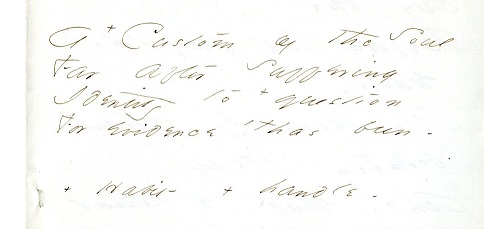 A + Custom of the Soul
Far after Suffering
Identity to + question
For evidence 'thas been -

+ Habit - + handle -